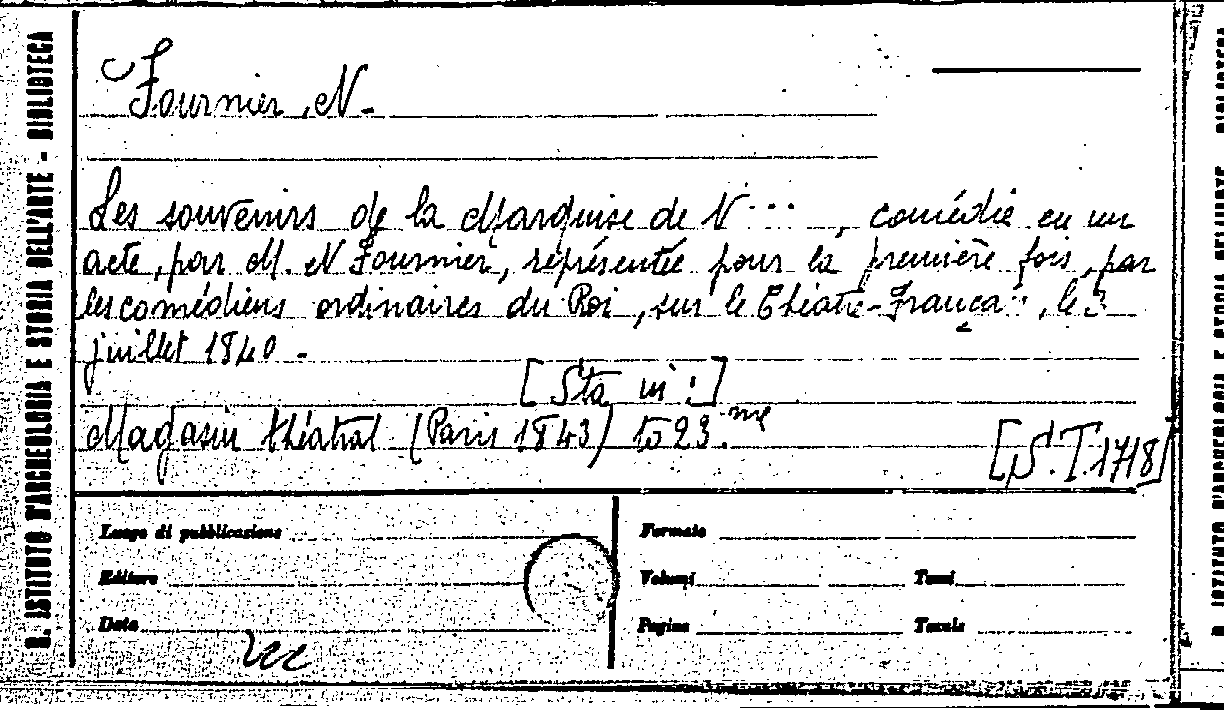 R. ISTITUTO D'ARCHEOLOGIA E STORIA DELL'ARTE - BIBLIOTECA
Fournier, N.
Les souvenirs de la Marquise de V···, comédie en un
acte, par M. N Fournier, représentée pour la première fois, par
les comédiens ordinaires du Roi, sur le Théatre-Français, le 3
juillet 1840.-
[Sta in:]
Magasin théatral (Paris 1843) to 23.me
[S.T.1718]
Luogo di pubblicazione
Formato
Editore
Volumi
Tomi
Data
Pagine
Tavole